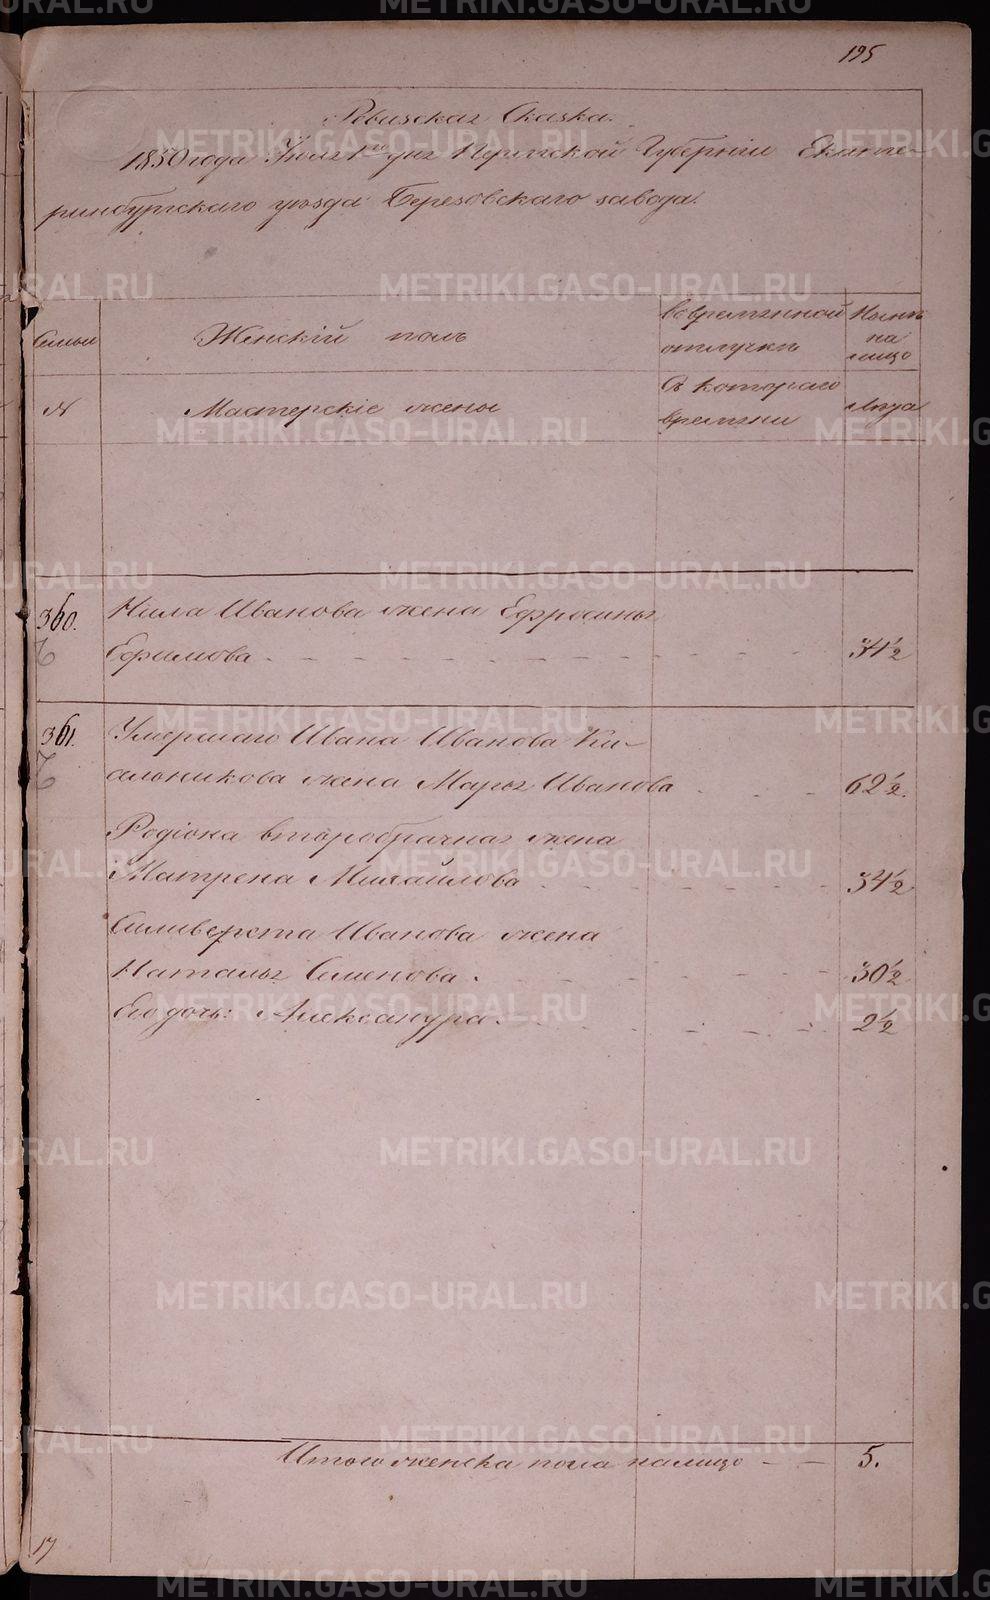 195
Ревизская Сказка.
1850 года Іюля 1го дня Пермской Губерніи Екате-
ринбургскаго уезда Березовскаго завода.
Семьи
Женскій полъ
Во временной отлучке
Ныне на лицо
№
Мастерскіе жены
Съ котораго времени
Лета
360.
Нила Иванова жена Ефросинья
Ефимова
34½
361.
Умершаго Ивана Иванова Ки-
сельникова жена Марья Иванова
62½.
Родіона второбрачная жена
Матрена Михайлова
34½
Силиверста Иванова жена
Наталья Семенова.
30½
Его дочь: Александра.
2½
Итого женска пола налицо
5.
17
METRIKI.GASO-URAL.RU